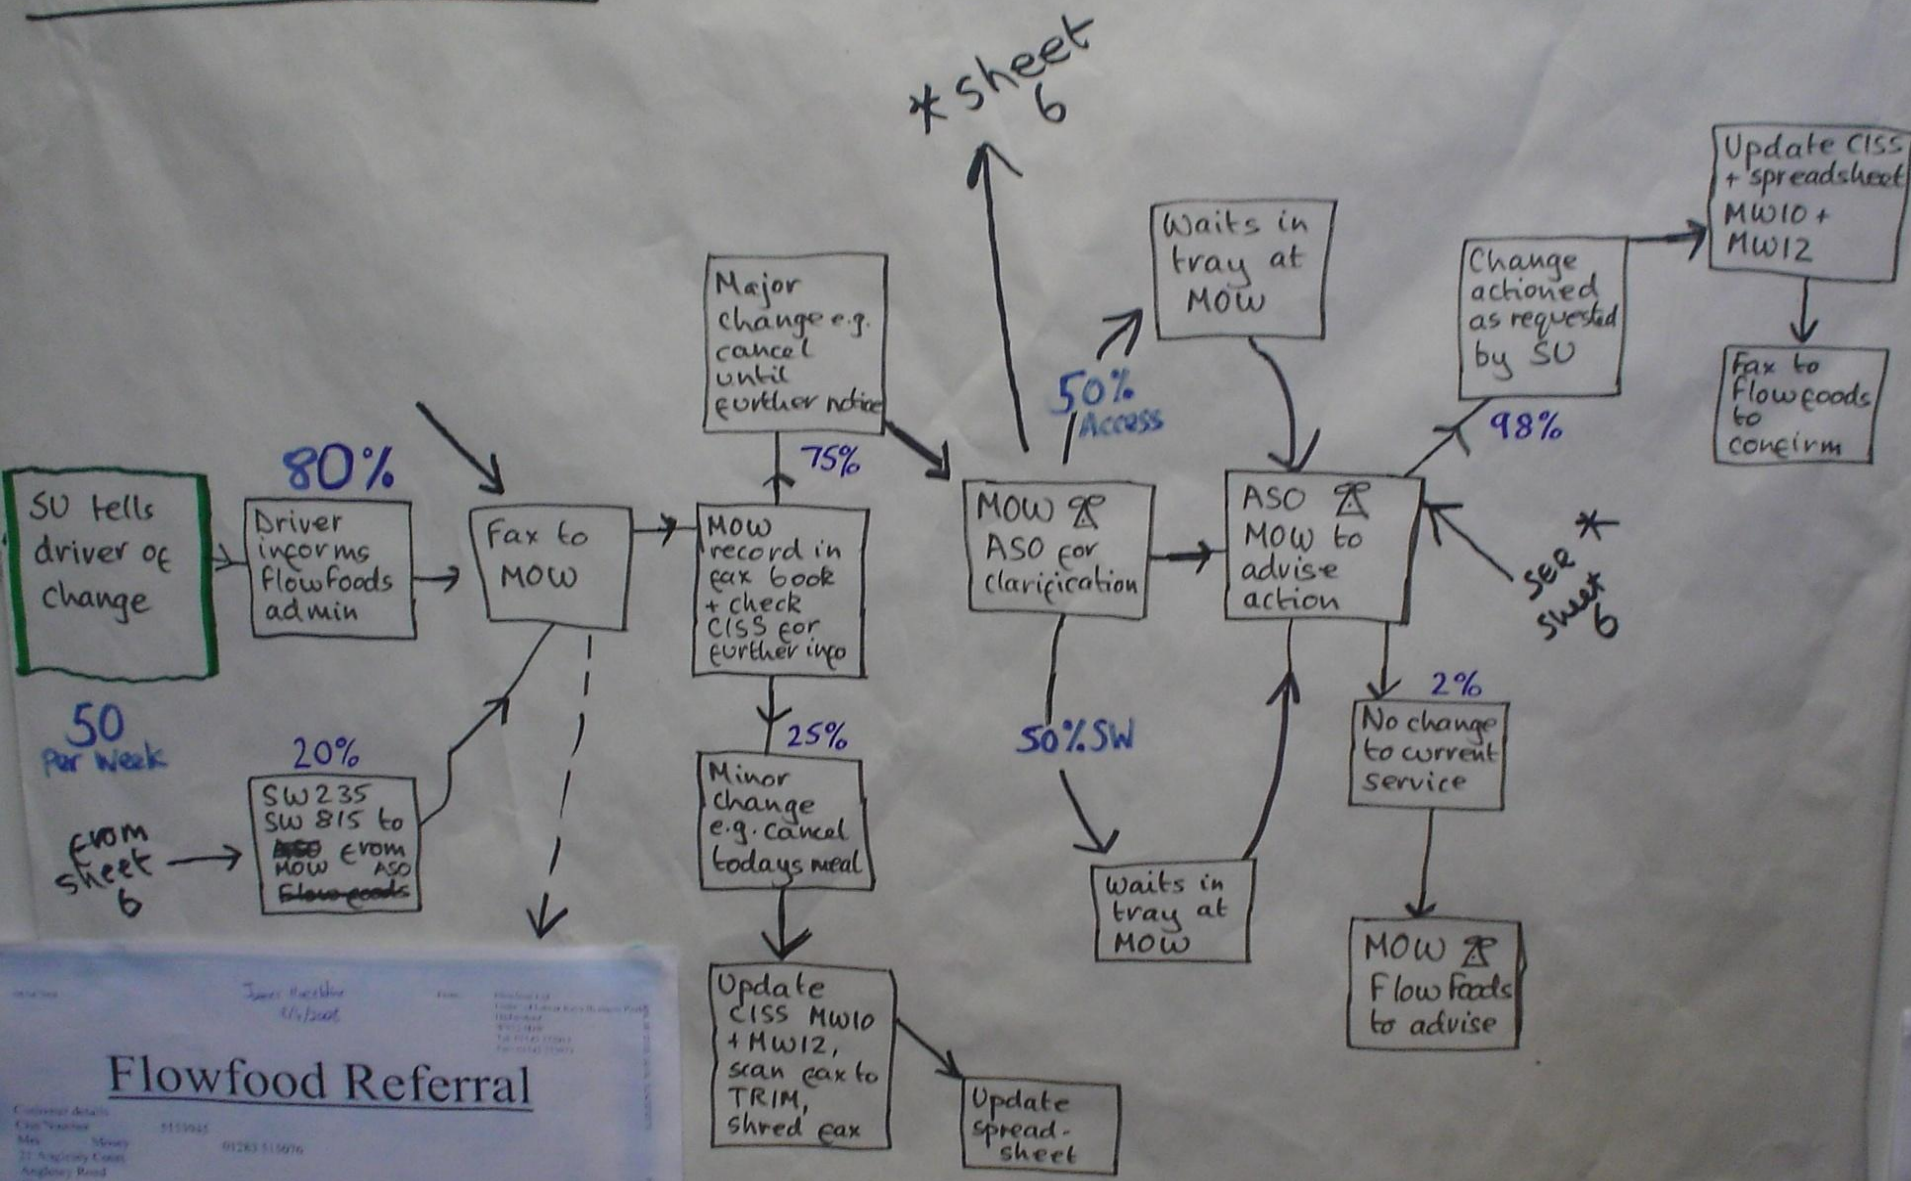 * sheet
6
SU tells
driver of
change
50
Per Week
80%
Driver
informs
flowfoods
admin
20%
SW 235
SW 815 to
from
MOW ASO
from
sheet
6
Fax to
MOW
Major
change e.g.
cancel
until
further notice
75%
MOW
record in
fax book
+ check
CISS for
further info
25%
Minor
change
e.g. cancel
todays meal
Update
CISS MW10
+ MW12,
scan fax to
TRIM,
shred fax
Update
spread-
sheet
MOW
ASO for
clarification
50%
Access
Waits in
tray at
MOW
50% SW
Waits in
tray at
MOW
ASO
MOW to
advise
action
SER *
Sheet
6
98%
Change
actioned
as requested
by SU
Update CISS
+ spreadsheet
MW10 +
MW12
Fax to
Flowfoods
to
confirm
2%
No change
to current
service
MOW
Flowfoods
to advise
Flowfood Referral
Customer details